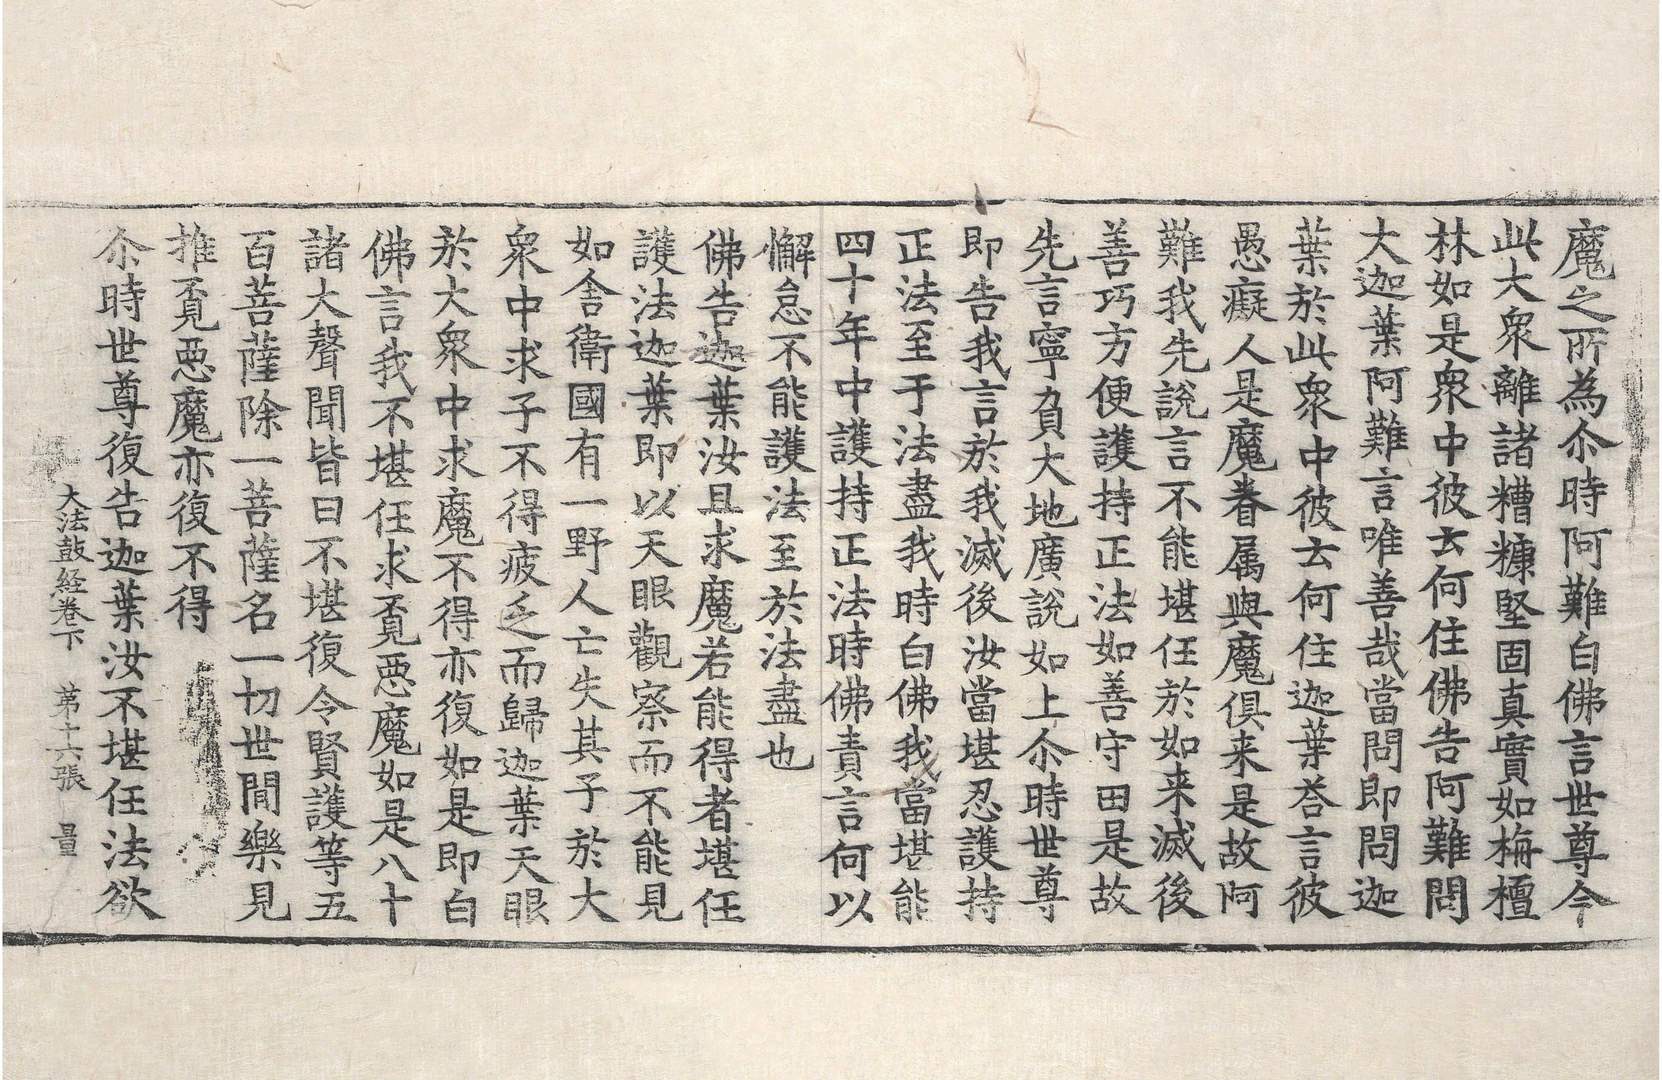 魔之所為尒時阿難白佛言世尊今
此大衆離諸糟糠堅固真實如栴檀
林如是衆中彼云何住佛告阿難問
大迦葉阿難言唯善哉當問即問迦
葉於此衆中彼云何住迦葉荅言彼
愚癡人是魔眷属與魔俱来是故阿
難我先說言不能堪任於如来滅後
善巧方便護持正法如善守田是故
先言寧負大地廣說如上尒時世尊
即告我言於我滅後汝當堪忍護持
正法至于法盡我時白佛我當堪能
四十年中護持正法時佛責言何以
懈怠不能護法至於法盡也
佛告迦葉汝且求魔若能得者堪任
護法迦葉即以天眼觀察而不能見
如舍衛國有一野人亡失其子於大
衆中求子不得疲乏而歸迦葉天眼
於大衆中求魔不得亦復如是即白
佛言我不堪任求覓惡魔如是八十
諸大聲聞皆曰不堪復令賢護等五
百菩薩除一菩薩名一切世間樂見
推覓惡魔亦復不得
尒時世尊復告迦葉汝不堪任法欲
大法鼓経卷下 第十六張 量